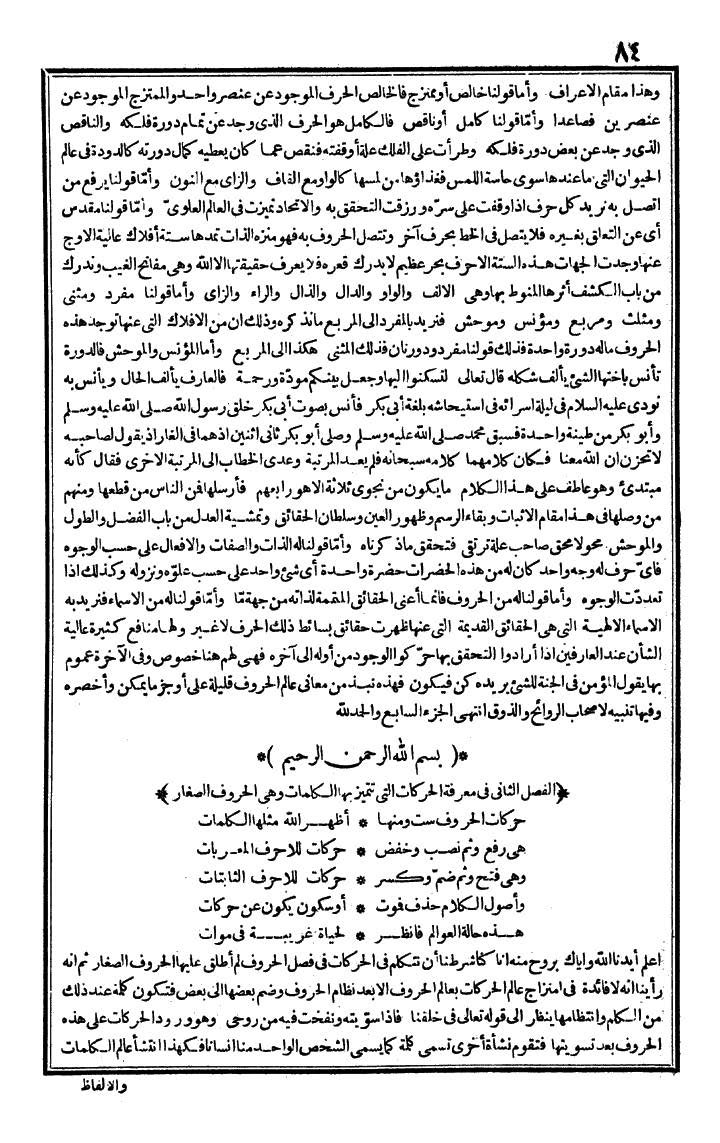 ٨٤
وهذا مقام الاعراف وأما قولنا خالص أو ممتزج فالخالص الحرف الموجود عن عنصر واحد والممتزج الموجود عن
عنصرين فصاعدا وأما قولنا كامل أو ناقص فالكامل هو الحرف الذى وجد عن تمام دورة فلكه والناقص
الذى وجد عن بعض دورة فلكه وطرأت على الفلك علة أوقفته فنقص عما كان يعطيه كمال دورته كالدودة فى عالم
الحيوان التى ما عندها سوى حاسة اللمس فغذاؤها من لمسها كالواو مع القاف والزاى مع النون وأما قولنا يرفع من
اتصل به نريد كل حرف اذا وقفت على سره ورزقت التحقق به والاتحاد تميزت فى العالم العلوى وأما قولنا مقدس
أى عن التعلق بغيره فلا يتصل فى الخط بحرف آخر وتتصل الحروف به فهو منزه الذات تمدها ستة أفلاك عالية الاوج
عنها وجدت الجهات هذه الستة الاحرف بحر عظيم لا يدرك قعره فلا يعرف حقيقتها الا الله وهى مفاتح الغيب وندرك
من باب الكشف أثرها المنوط بها وهى الالف والواو والدال والذال والراء والزاى وأما قولنا مفرد ومثنى
ومثلث ومربع ومؤنس وموحش فنريد بالمفرد الى المربع ما نذكره وذلك ان من الافلاك التى عنها توجد هذه
الحروف ما له دورة واحدة فذلك قولنا مفرد ودورتان فذلك المثنى هكذا الى المربع وأما المؤنس والموحش فالدورة
تأنس باختها الشئ يألف شكله قال تعالى لتسكنوا اليها وجعل بينكم مودة ورحمة فالعارف يألف الحال ويأنس به
نودى عليه السلام فى ليلة اسرائه فى استيحاشه بلغة أبى بكر فأنس بصوت أبى بكر خلق رسول الله صلى الله عليه وسلم
وأبو بكر من طينة واحدة فسبق محمد صلى الله عليه وسلم وصلى أبو بكر ثانى اثنين اذ هما فى الغار اذ يقول لصاحبه
لا تحزن ان الله معنا فكان كلامهما كلامه سبحانه فلم يعد المرتبة وعدى الخطاب الى المرتبة الاخرى فقال كأنه
مبتدئ وهو عاطف على هذا الكلام ما يكون من نجوى ثلاثة الا هو رابعهم فأرسلها فن الناس من قطعها ومنهم
من وصلها فى هذا مقام الاثبات وبقاء الرسم وظهور العين وسلطان الحقائق وتمشية العدل من باب الفضل والطول
والموحش محو لا محق صاحب علة ترتقى فتحقق ما ذكرناه وأما قولنا له الذات والصفات والافعال على حسب الوجوه
فاى حرف له وجه واحد كان له من هذه الحضرات حضرة واحدة أى شئ واحد على حسب علوه ونزوله وكذلك اذا
تعددت الوجوه وأما قولنا له من الحروف فانما أعنى الحقائق المتممة لذاته من جهة ما وأما قولنا له من الاسماء فنريد به
الاسماء الالهية التى هى الحقائق القديمة التى عنها ظهرت حقائق بسائط ذلك الحرف لا غير ولها منافع كثيرة عالية
الشأن عند العارفين اذا أرادوا التحقق بها حركوا الوجود من أوله الى آخره فهى لهم هنا خصوص وفى الآخرة عموم
بها يقول المؤمن فى الجنة للشئ يريده كن فيكون فهذه نبذ من معانى عالم الحروف قليلة على أوجز ما يمكن وأخصره
وفيها تنبيه لاصحاب الروائح والذوق انتهى الجزء السابع والحمد لله
*( بسم الله الرحمن الرحيم )*
﴿الفصل الثانى فى معرفة الحركات التى تتميز بها الكلمات وهى الحروف الصغار﴾
حركات الحروف ست ومنها * أظهر الله مثلها الكلمات
هى رفع وثم نصب وخفض * حركات للاحرف المعربات
وهى فتح وثم ضم وكسر * حركات للاحرف الثابتات
وأصول الكلام حذف فوت * أو سكون يكون عن حركات
هذه حالة العوالم فانظر * لحياة غريبة فى موات
اعلم أيدنا الله واياك بروح منه انا كنا شرطنا أن نتكلم فى الحركات فى فصل الحروف لم أطلق عليها الحروف الصغار ثم انه
رأينا انه لا فائدة فى امتزاج عالم الحركات بعالم الحروف الا بعد نظام الحروف وضم بعضها الى بعض فتكون كلمة عند ذلك
من الكلم وانتظامها ينظر الى قوله تعالى فى خلقنا فاذا سويته ونفخت فيه من روحى وهو ورود الحركات على هذه
الحروف بعد تسويتها فتقوم نشأة أخرى تسمى كلمة كما يسمى الشخص الواحد منا انسانا فكهذا انتشأ عالم الكلمات
والالفاظ